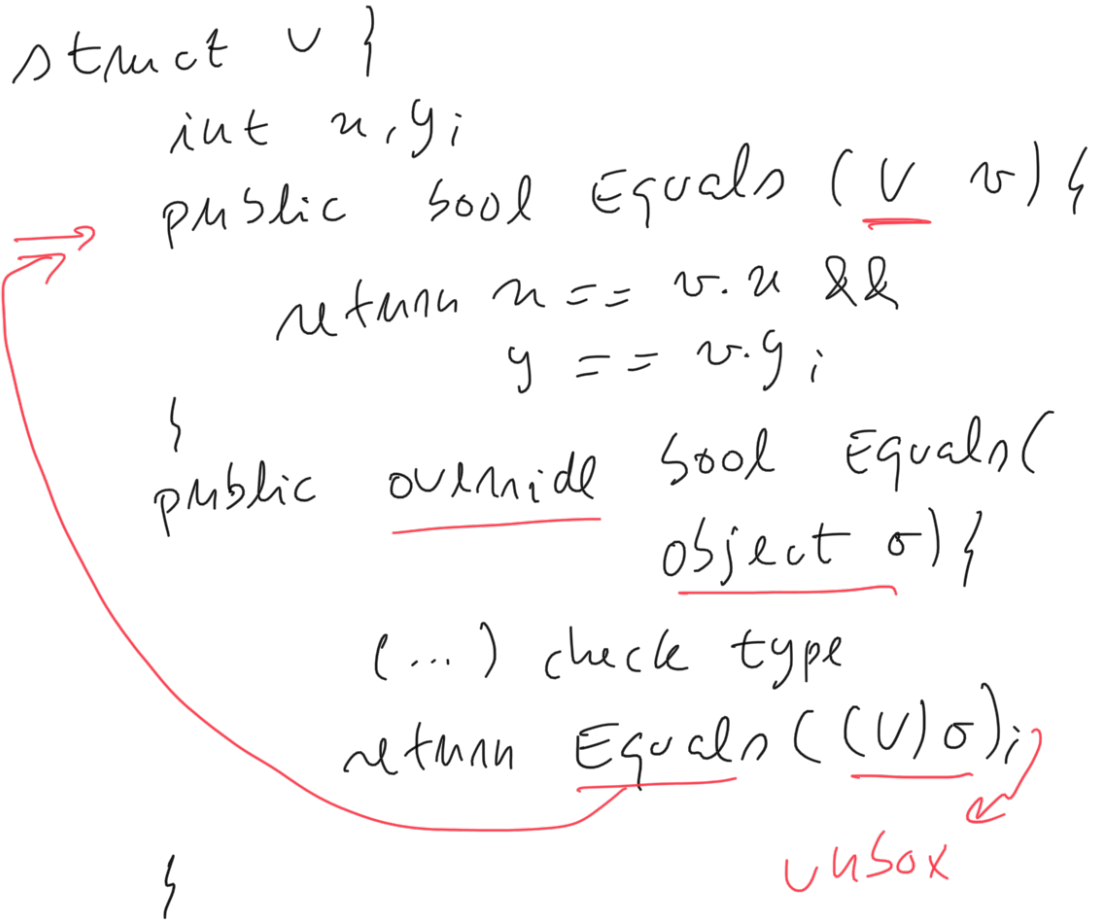 struct V {
int x, y;
public bool Equals (V v) {
return x == v.x &&
y == v.y;
}
public override bool Equals(
object o) {
(...) check type
return Equals((V)o);
unbox
}